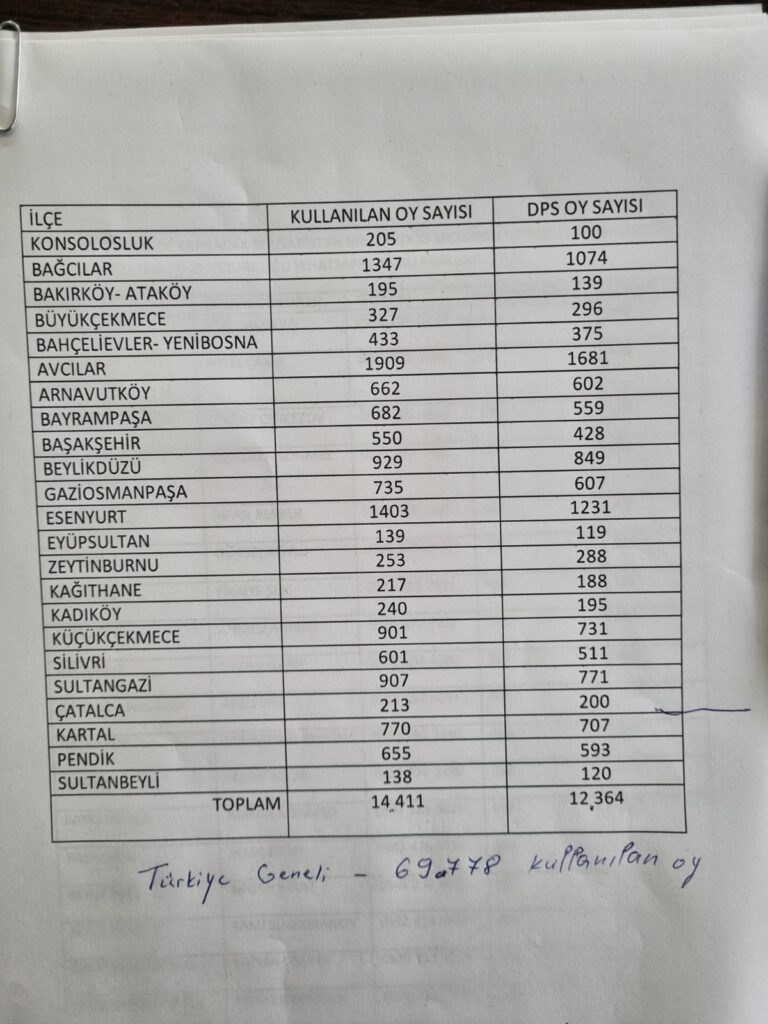 İLÇE KULLANILAN OY SAYISI DPS OY SAYISI
KONSOLOSLUK 205 100
BAĞCILAR 1347 1074
BAKIRKÖY- ATAKÖY 195 139
BÜYÜKÇEKMECE 327 296
BAHÇELİEVLER- YENİBOSNA 433 375
AVCILAR 1909 1681
ARNAVUTKÖY 662 602
BAYRAMPAŞA 682 559
BAŞAKŞEHİR 550 428
BEYLİKDÜZÜ 929 849
GAZİOSMANPAŞA 735 607
ESENYURT 1403 1231
EYÜPSULTAN 139 119
ZEYTİNBURNU 253 288
KAĞITHANE 217 188
KADIKÖY 240 195
KÜÇÜKÇEKMECE 901 731
SİLİVRİ 601 511
SULTANGAZİ 907 771
ÇATALCA 213 200
KARTAL 770 707
PENDİK 655 593
SULTANBEYLİ 138 120
TOPLAM 14.411 12.364
Türkiye Geneli - 69.778 kullanılan oy